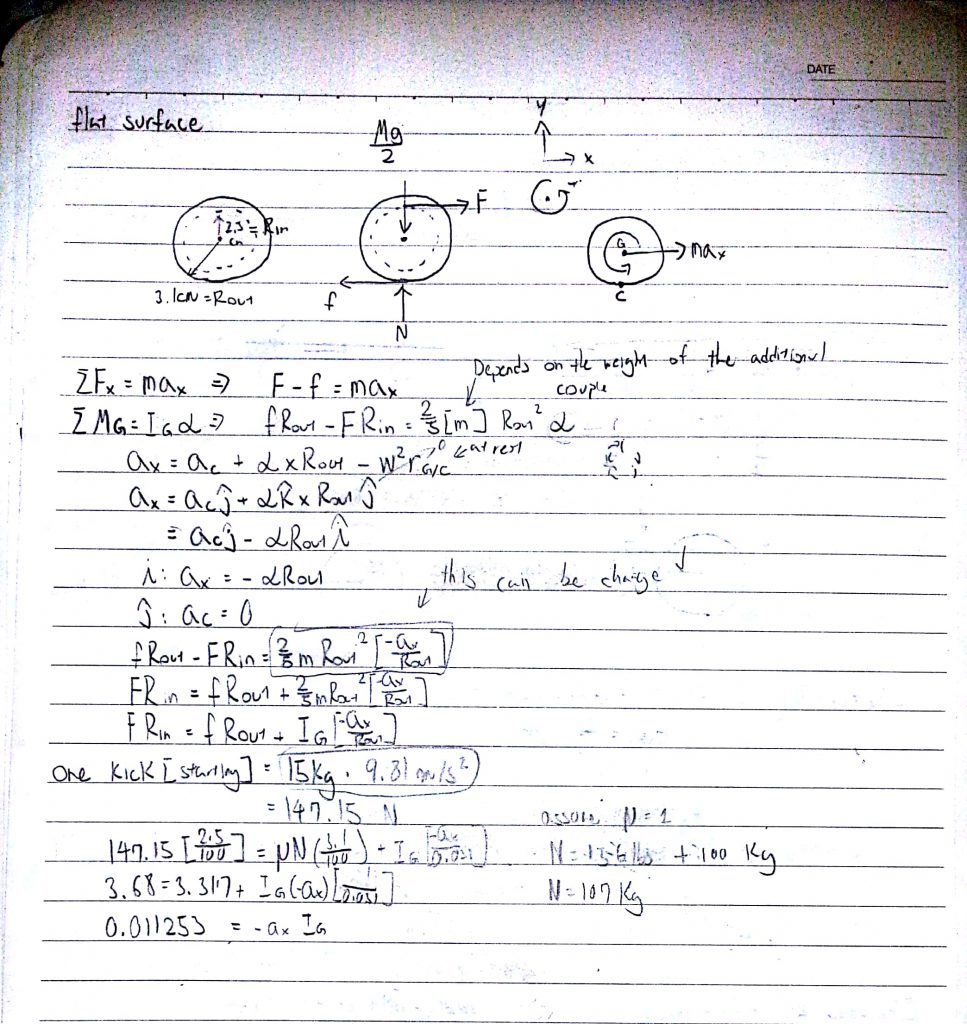 DATE
flat surface
Mg
2
y
x
2.5 = Rin
cm
F
G
max
3.1cm = Rout
f
C
N
Depends on the weight of the additional
couple
ΣFx = max ⇒ F - f = max
ΣMG = IGα ⇒ fRout - FRin = 2/5 [m] Rout² α
ax = ac + α x Rout - w² rG/C 0 ← at rest
ax = acĵ + αk̂ x Rout ĵ
= acĵ - αRout î
i: ax = - αRout
this can be change
ĵ: ac = 0
fRout - FRin = 2/5 m Rout² [-ax/Rout]
FRin = fRout + 2/5 mRout² [-ax/Rout]
FRin = fRout + IG [-ax/Rout]
One Kick [starting] = 15Kg · 9.81 m/s²
= 147.15 N
assume μ = 1
147.15 [2.5/100] = μN (3.1/100) + IG [-ax/0.031]
N = lbs + 100 Kg
3.68 = 3.317 + IG(-ax) [1/0.031]
N = 107 Kg
0.011253 = -ax IG